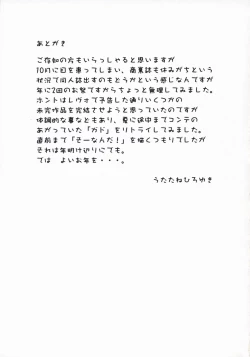 あとがき
ご存知の方もいらっしゃると思いますが
10月に目を患ってしまい、商業誌も休みがちという
状況で同人誌出すのもどうかという感じなんですが
年に2回のお祭ですからちょっと無理してみました。
ホントはレヴォで予告した通りいくつかの
未完作品を完結させようと思っていたのですが
体調的な事などもあり、夏に途中までコンテの
あがっていた「ガド」をリトライしてみました。
直前まで「そーなんだ！」を描くつもりでしたが
それは年明け近りにでも。
では　よいお年を・・・。
うたたねひろゆき